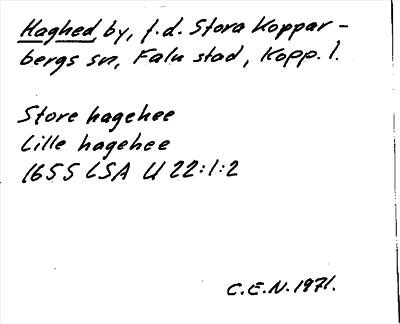 Haghed by, f.d. Stora Koppar-
bergs sn, Falu stad, Kopp. l.
Store hagehee
Lille hagehee
1655 LSA U 22:1:2
C.E.N. 1971.